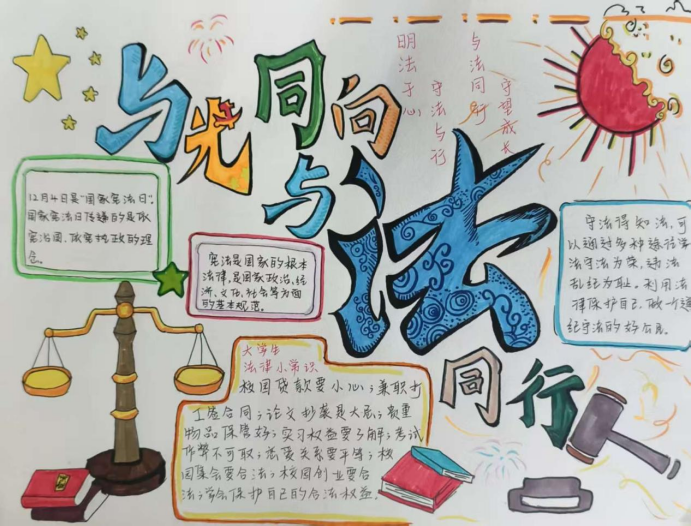 与光同向
与法
同行
明法于心
守法与行
与法同行
守望成长
12月4日是"国家宪法日".
国家宪法日传递的是依
宪治国、依宪执政的理
念。
宪法是国家的根本
法律,是国家政治、经
济、文化、社会等方面
的基本规范。
守法得知法,可
以通过多种途径
法守法为荣,违法
乱纪为耻。利用法
律保护自己,做一
纪守法的好公民。
大学生
法律小常识
校园贷款要小心;兼职打
工签合同;论文抄袭是大忌;贵重
物品保管好;实习权益要了解;考试
作弊不可取;恋爱关系要平等;校
园集会要合法;校园创业要合
法;学会保护自己的合法权益.